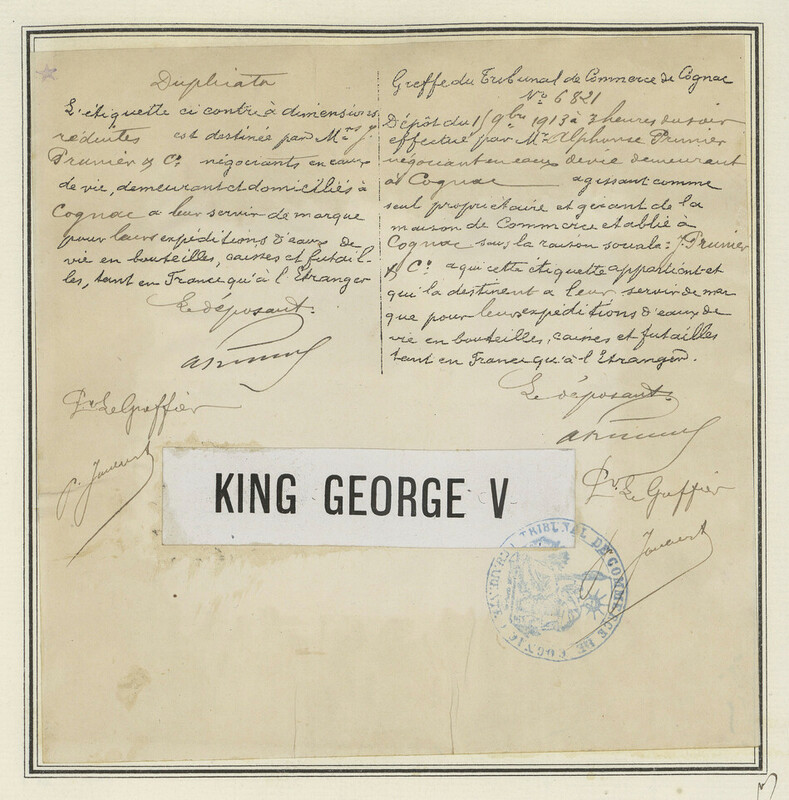 Duplicata
L'étiquette ci contre à dimensions
réduites est destinée par Mrs J.
Prunier & Co négociants en eaux
de vie, demeurant et domiciliés à
Cognac a leur servir de marque
pour leurs expéditions d'eaux de
vie en bouteilles, caisses et futail-
les, tant en France qu'à l'Etranger
Le déposant.
APrunier
Pr Le Greffier
P. Jouvert
Greffe du Tribunal de Commerce de Cognac
No 6821
Dépôt du 15 9bre 1913 à 3 heures du soir
effectué par Mr Alphonse Prunier
négociant en eaux de vie demeurant
à Cognac agissant comme
seul propriétaire et gérant de la
maison de Commerce etablie à
Cognac sous la raison sociale: J. Prunier
& Co a qui cette étiquette appartient et
qui la destinent a leur servir de mar
que pour leurs expéditions d'eaux de
vie en bouteilles, caisses et futailles
tant en France qu'à l'Etranger.
Le déposant.
APrunier
Pr Le Greffier
KING GEORGE V
TRIBUNAL DE COMMERCE DE COGNAC